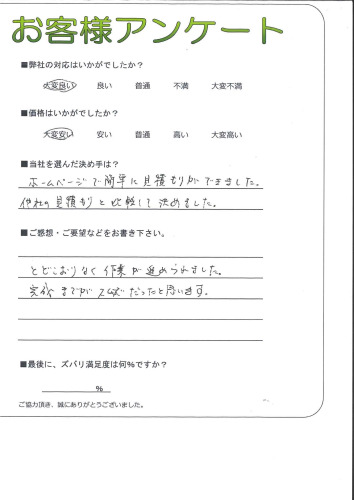 お客様アンケート
■弊社の対応はいかがでしたか？
大変良い 良い 普通 不満 大変不満
■価格はいかがでしたか？
大変安い 安い 普通 高い 大変高い
■当社を選んだ決め手は？
ホームページで簡単に見積もりができました。
他社の見積もりと比較して決めました。
■ご感想・ご要望などをお書き下さい。
とどこおりなく作業が進められました。
までがスムーズだったと思います。
■最後に、ズバリ満足度は何％ですか？
％
ご協力頂き、誠にありがとうございました。